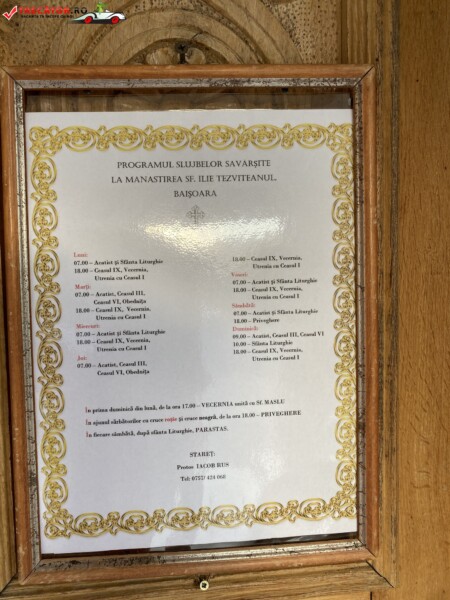 PROGRAMUL SLUJBELOR SAVARȘITE
LA MANASTIREA SF. ILIE TEZVITEANUL,
BAIȘOARA
Luni:
07.00 – Acatist și Sfânta Liturghie
18.00 – Ceasul IX, Vecernia,
Utrenia cu Ceasul I
Marți:
07.00 – Acatist, Ceasul III,
Ceasul VI, Obednița
18.00 – Ceasul IX, Vecernia,
Utrenia cu Ceasul I
Miercuri:
07.00 – Acatist și Sfânta Liturghie
18.00 – Ceasul IX, Vecernia,
Utrenia cu Ceasul I
Joi:
07.00 – Acatist, Ceasul III,
Ceasul VI, Obednița
18.00 – Ceasul IX, Vecernia,
Utrenia cu Ceasul I
Vineri:
07.00 – Acatist și Sfânta Liturghie
18.00 – Ceasul IX, Vecernia,
Utrenia cu Ceasul I
Sâmbătă:
07.00 – Acatist și Sfânta Liturghie
18.00 – Priveghere
Duminică:
09.00 – Acatist, Ceasul III, Ceasul VI
10.00 – Sfânta Liturghie
18.00 – Ceasul IX, Vecernia,
Utrenia cu Ceasul I
În prima duminică din lună, de la ora 17.00 – VECERNIA unită cu Sf. MASLU
În ajunul sărbătorilor cu cruce roșie și cruce neagră, de la ora 18.00 – PRIVEGHERE
În fiecare sâmbătă, după sfânta Liturghie, PARASTAS.
STAREȚ:
Protos. IACOB RUS